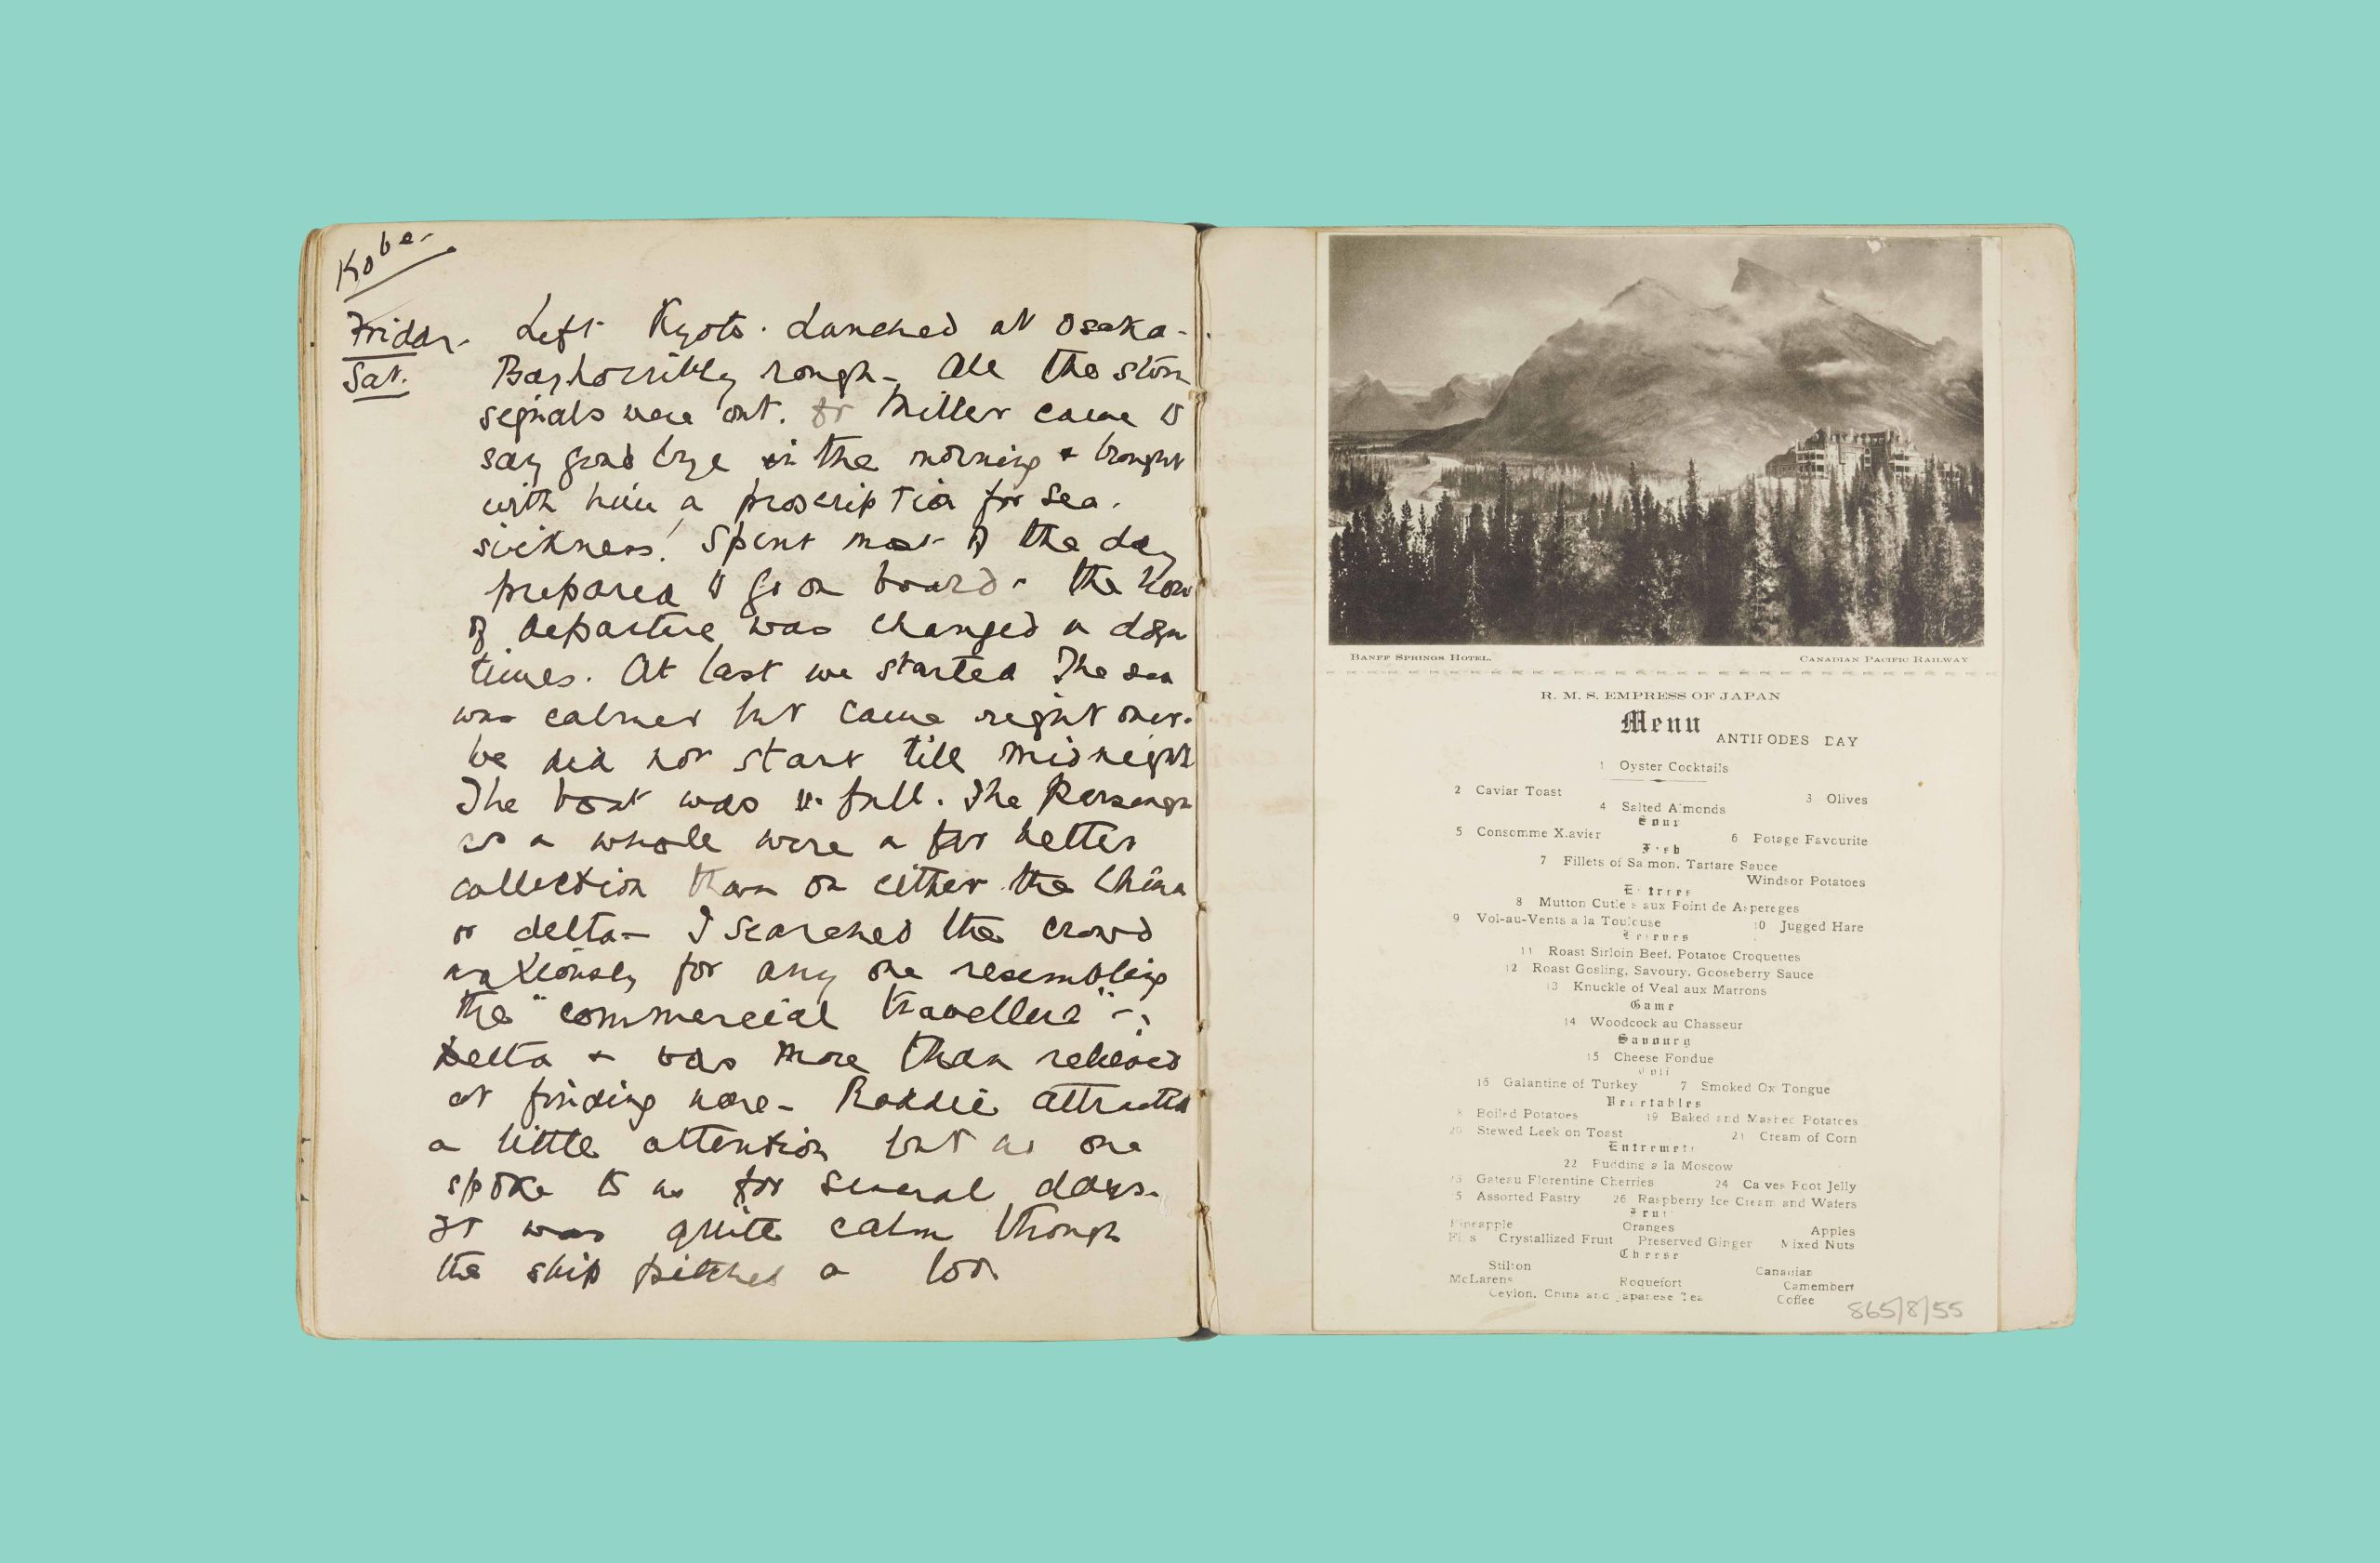 Kobe-
Friday. Left Kyoto. Lunched at Osaka-
Sat. Bay horribly rough- All the storm
signals were out. Dr Miller came to
say good bye in the morning & brought
with him a prescription for sea.
sickness! Spent most of the day
prepared to go on board. the hour
of departure was changed a dozn
times. At last we started The sea
was calmer but came right over.
We did not start till midnight
The boat was full. The Passengrs
as a whole were a far better
collection than on either the China
or delta- I searched the crowd
anxiously for any one resembling
the "commercial travellers"-:
Delta & was more than relieved
at finding none- Roddie attracted
a little attention but no one
spoke to us for several days.
It was quite calm though
the ship pitched a lot
BANFF SPRINGS HOTEL. CANADIAN PACIFIC RAILWAY
R. M. S. EMPRESS OF JAPAN
Menu
ANTIPODES DAY
1 Oyster Cocktails
2 Caviar Toast 3 Olives
4 Salted Almonds
Soup
5 Consomme Xavier 6 Potage Favourite
Fish
7 Fillets of Salmon, Tartare Sauce
Windsor Potatoes
Entrees
8 Mutton Cutlets aux Point de Asperges
9 Vol-au-Vents a la Toulouse 10 Jugged Hare
Releves
11 Roast Sirloin Beef, Potatoe Croquettes
12 Roast Gosling, Savoury, Gooseberry Sauce
13 Knuckle of Veal aux Marrons
Game
14 Woodcock au Chasseur
Savoury
15 Cheese Fondue
Cold
16 Galantine of Turkey 17 Smoked Ox Tongue
Vegetables
18 Boiled Potatoes 19 Baked and Mashed Potatoes
20 Stewed Leek on Toast 21 Cream of Corn
Entremets
22 Pudding a la Moscow
23 Gateau Florentine Cherries 24 Calves Foot Jelly
25 Assorted Pastry 26 Raspberry Ice Cream and Wafers
Fruit
Pineapple Oranges Apples
Figs Crystallized Fruit Preserved Ginger Mixed Nuts
Cheese
Stilton Canadian
McLarens Roquefort Camembert
Ceylon, China and Japanese Tea Coffee
865/8/55